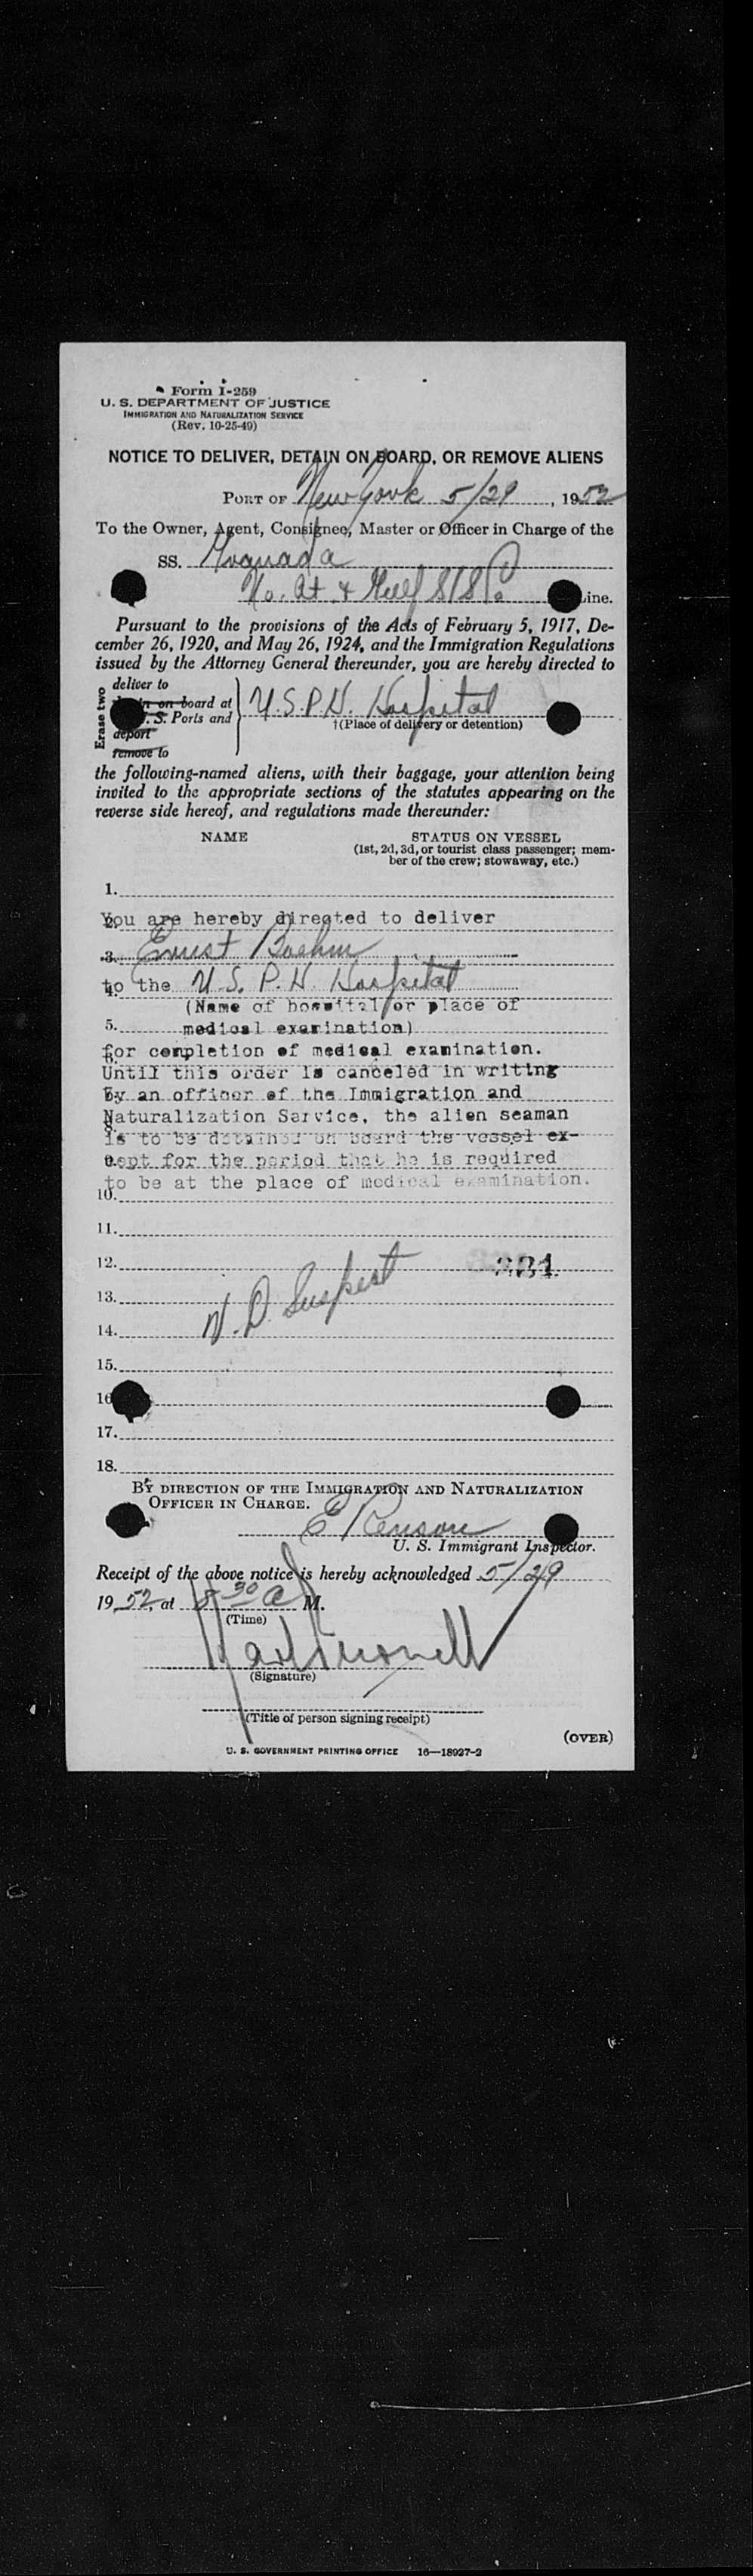 Form I-259
U. S. DEPARTMENT OF JUSTICE
IMMIGRATION AND NATURALIZATION SERVICE
(Rev. 10-25-49)
NOTICE TO DELIVER, DETAIN ON BOARD, OR REMOVE ALIENS
PORT OF New York 5/29, 1952
To the Owner, Agent, Consignee, Master or Officer in Charge of the
SS. Granada
No. At. & Gulf S/S Co Line.
Pursuant to the provisions of the Acts of February 5, 1917, De-
cember 26, 1920, and May 26, 1924, and the Immigration Regulations
issued by the Attorney General thereunder, you are hereby directed to
Erase two
deliver to
on board at
S. Ports and
deport
remove to
U.S.P.H. Hospital
†(Place of delivery or detention)
the following-named aliens, with their baggage, your attention being
invited to the appropriate sections of the statutes appearing on the
reverse side hereof, and regulations made thereunder:
NAME STATUS ON VESSEL
(1st, 2d, 3d, or tourist class passenger; mem-
ber of the crew; stowaway, etc.)
1.
2. You are hereby directed to deliver
3. Ernest Boehm
4. to the U.S.P.H. Hospital
(Name of hospital or place of
5. medical examination)
for completion of medical examination.
Until this order is canceled in writing
by an officer of the Immigration and
Naturalization Service, the alien seaman
is to be detained on board the vessel ex-
cept for the period that he is required
to be at the place of medical examination.
10.
11.
12. 321
13.
V. D. Suspect
14.
15.
16
17.
18.
BY DIRECTION OF THE IMMIGRATION AND NATURALIZATION
OFFICER IN CHARGE.
E
U. S. Immigrant Inspector.
Receipt of the above notice is hereby acknowledged 5/29
1952, at 8 30 a M.
(Time)
(Signature)
(Title of person signing receipt)
(OVER)
U. S. GOVERNMENT PRINTING OFFICE 16—18927-2